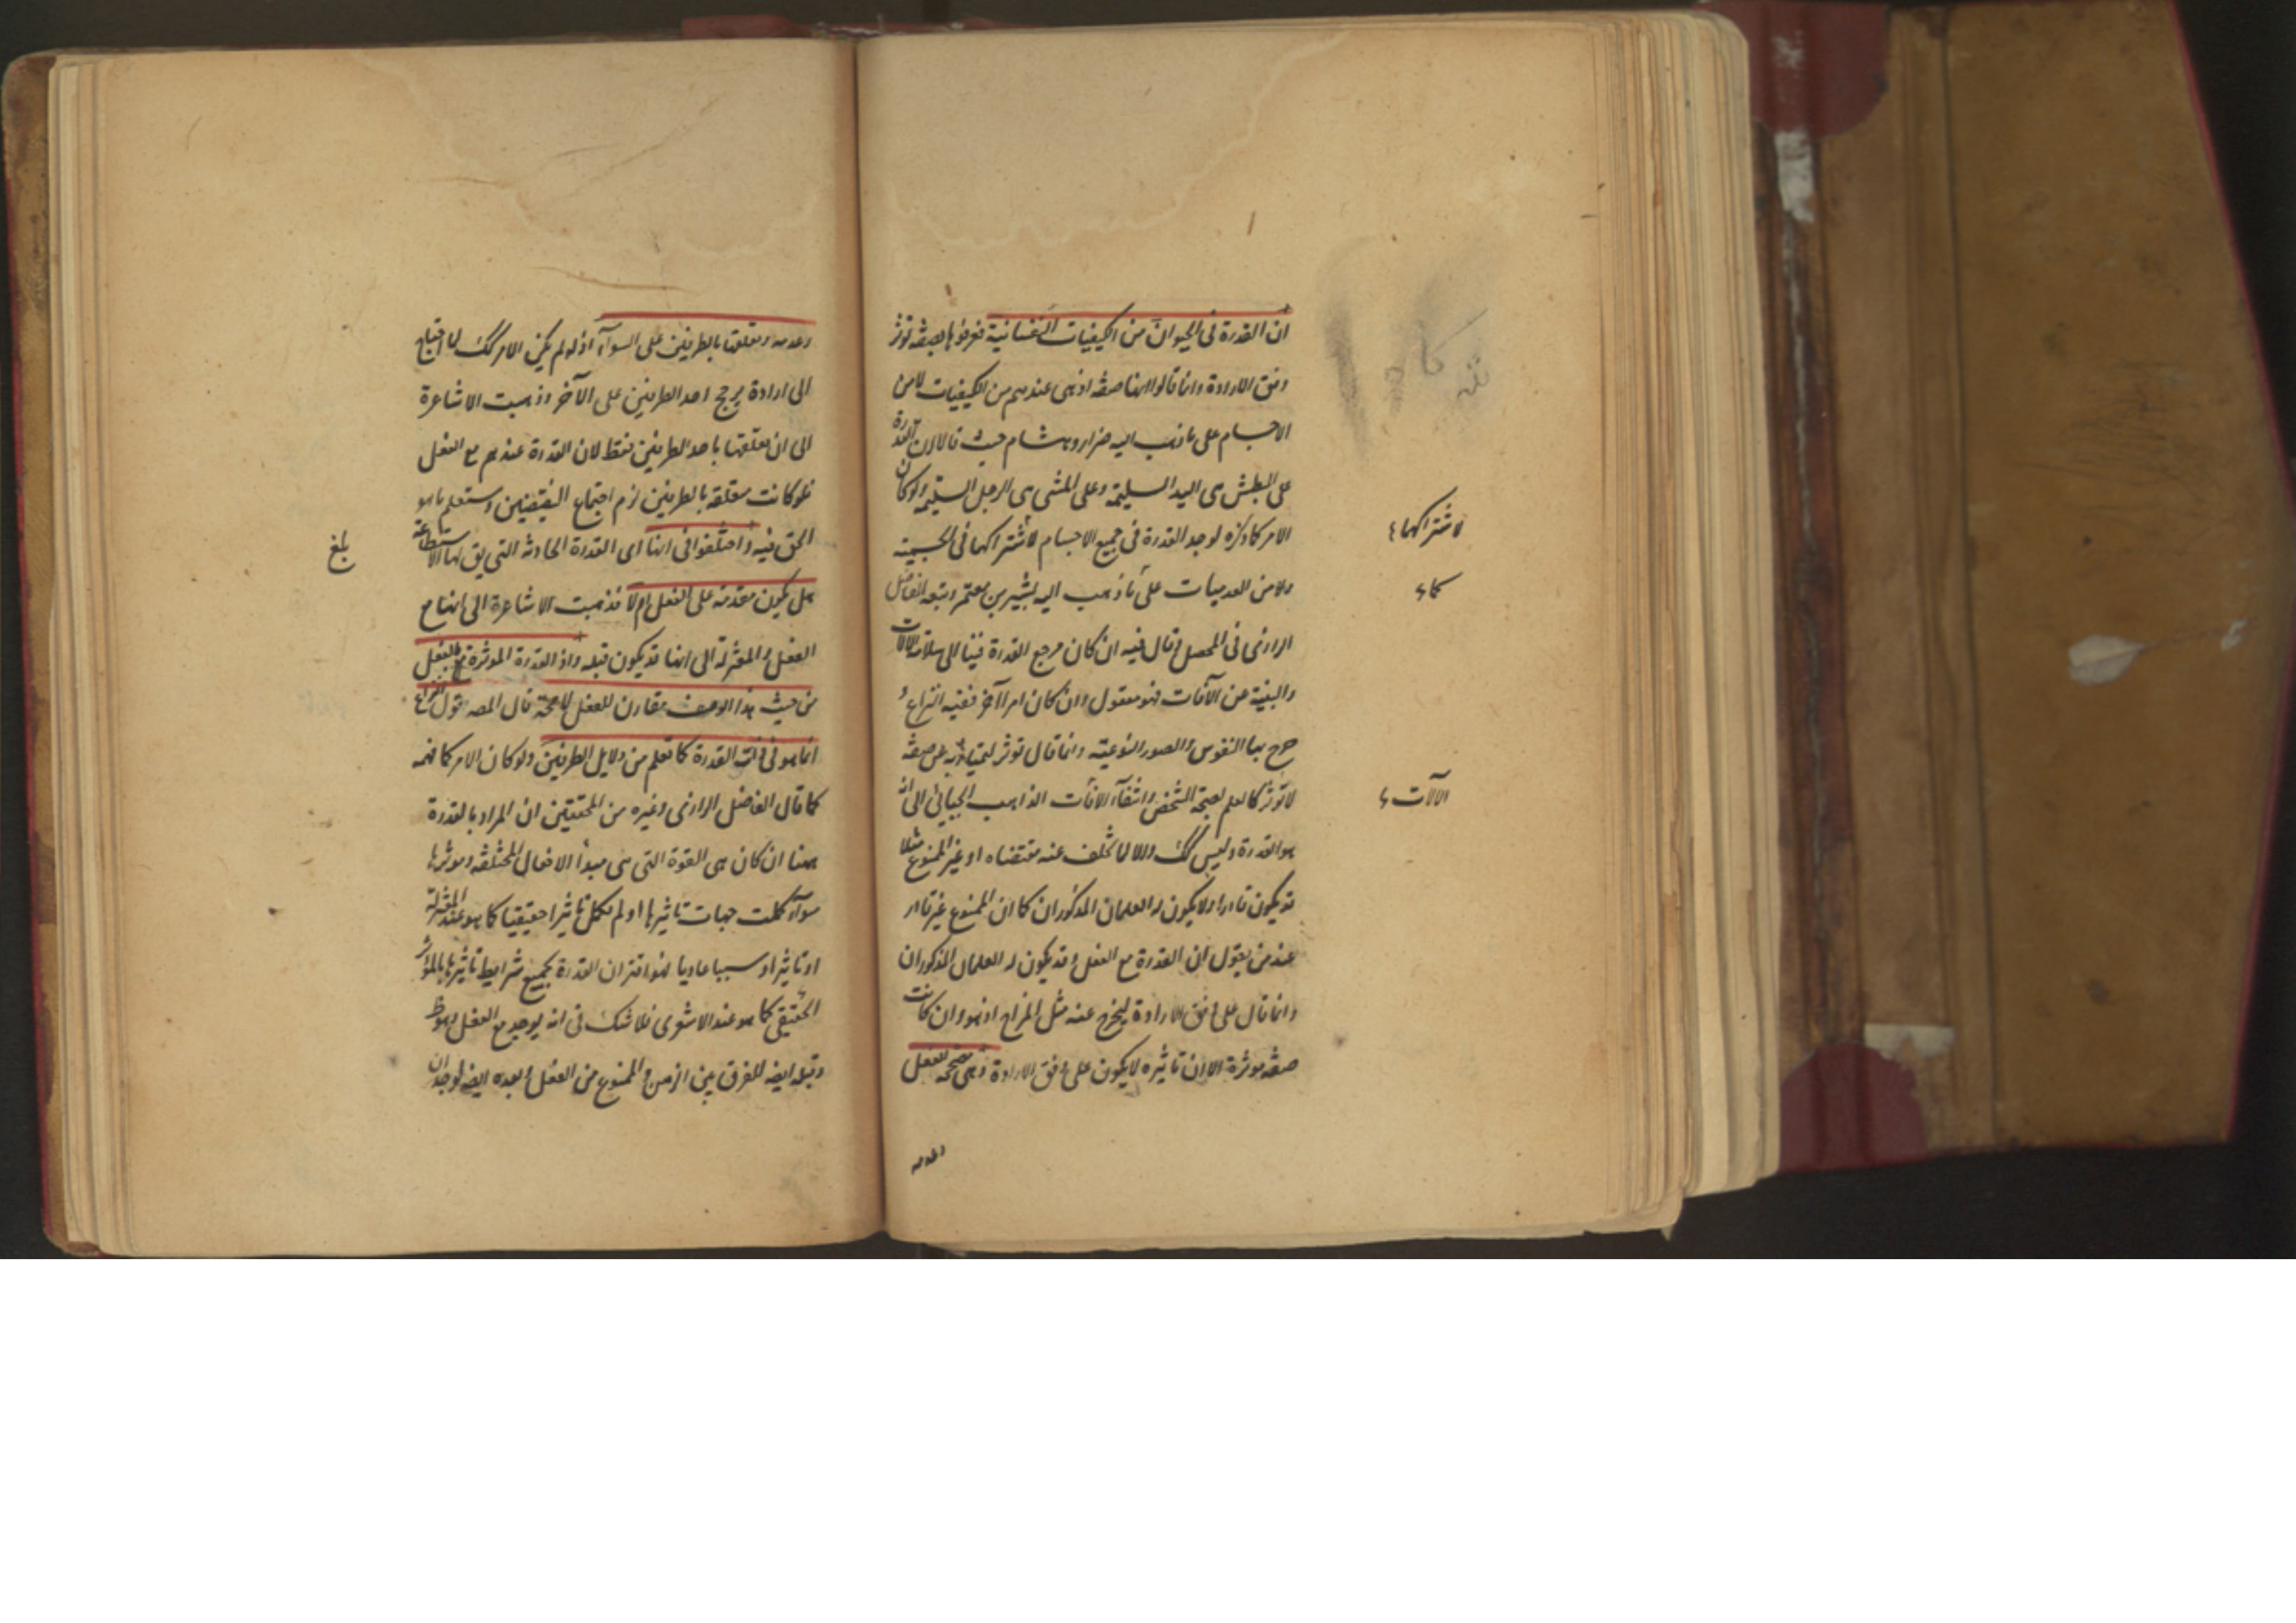 ان القدرة فى الحيوان من الكيفيات النفسانية فعرفوها بصفة تؤثر
وفق الارادة وانما قالوا انها صفة اذ هى عندهم من الكيفيات لا من
الاجسام على ما ذهب اليه ضرار وهشام حيث قالا ان القدرة
على البطش هى اليد السليمة وعلى المشى هى الرجل السليمة ولو كان
الامر كما ذكره لوجد القدرة فى جميع الاجسام لاشتراكها فى الجسمية
لاشتراكها
ولا من العدميات على ما ذهب اليه بشير بن معتمر وتبعه الفاضل
كما
الرازى فى المحصل وقال فيه ان كان مرجع القدرة فينا الى سلامة الآلات
والبنية عن الآفات فهو معقول وان كان امرا آخر ففيه النزاع و
خرج بها النفوس والصور النوعية وانما قال تؤثر ليمتاز به عن صفة
لا تؤثر كالعلم بصحة الشخص وانتفاء الآفات الذاهب الجبائى الى انه
الآلات
هو القدرة وليس كك والا لما تخلف عنه مقتضاه اذ غير الممنوع مثلا
قد يكون قادرا ولا يكون له العلمان المذكوران كما ان الممنوع غير قادر
عند من يقول ان القدرة مع الفعل وقد يكون له العلمان المذكوران
وانما قال على وفق الارادة ليخرج عنه مثل المزاج اذ هو وان كانت
صفة مؤثرة الا ان تاثيره لا يكون على وفق الارادة وهى مصححة للفعل
وعدمه
وعدمه وتعلقها بالطرفين على السوآء اذ لو لم يكن الامر كك لما احتياج
الى ارادة يرجح احد الطرفين على الآخر وذهبت الاشاعرة
الى ان تعلقها باحد الطرفين فقط لان القدرة عندهم مع الفعل
فلو كانت متعلقة بالطرفين لزم اجتماع النقيضين وستعلم ما هو
الحق فيه واختلفوا فى انها اى القدرة الحادثة التى يق لها الاستطاعة
بلغ
هل يكون مقدمة على الفعل ام لا فذهبت الاشاعرة الى انها مع
الفعل والمعتزلة الى انها قد يكون قبله واذ القدرة المؤثرة مع الفعل
من حيث هذا الوصف مقارن للفعل قال المصه نقول النزاع
انما هو فى القدرة كما تعلم من دلايل الطرفين ولو كان الامر كما فهمه
كما قال الفاضل الرازى وغيره من المحققين ان المراد بالقدرة
ههنا ان كان هى القوة التى هى مبدأ الافعال المختلفة ومؤثرها
سوآء كملت جهات تاثيرها او لم تكمل تاثيرا حقيقيا كما هو عند المعتزلة
او تاثيرا وسببا عاديا لهذا اقتران القدرة بجميع شرايط تاثيرها بالمؤثر
الحقيقى كما هو عند الاشعرى فلا شك فى انه يوجد مع الفعل وهو ظ
وقبله ايضه للفرق بين الزمن والممنوع من الفعل وبعده ايضه لوجدان